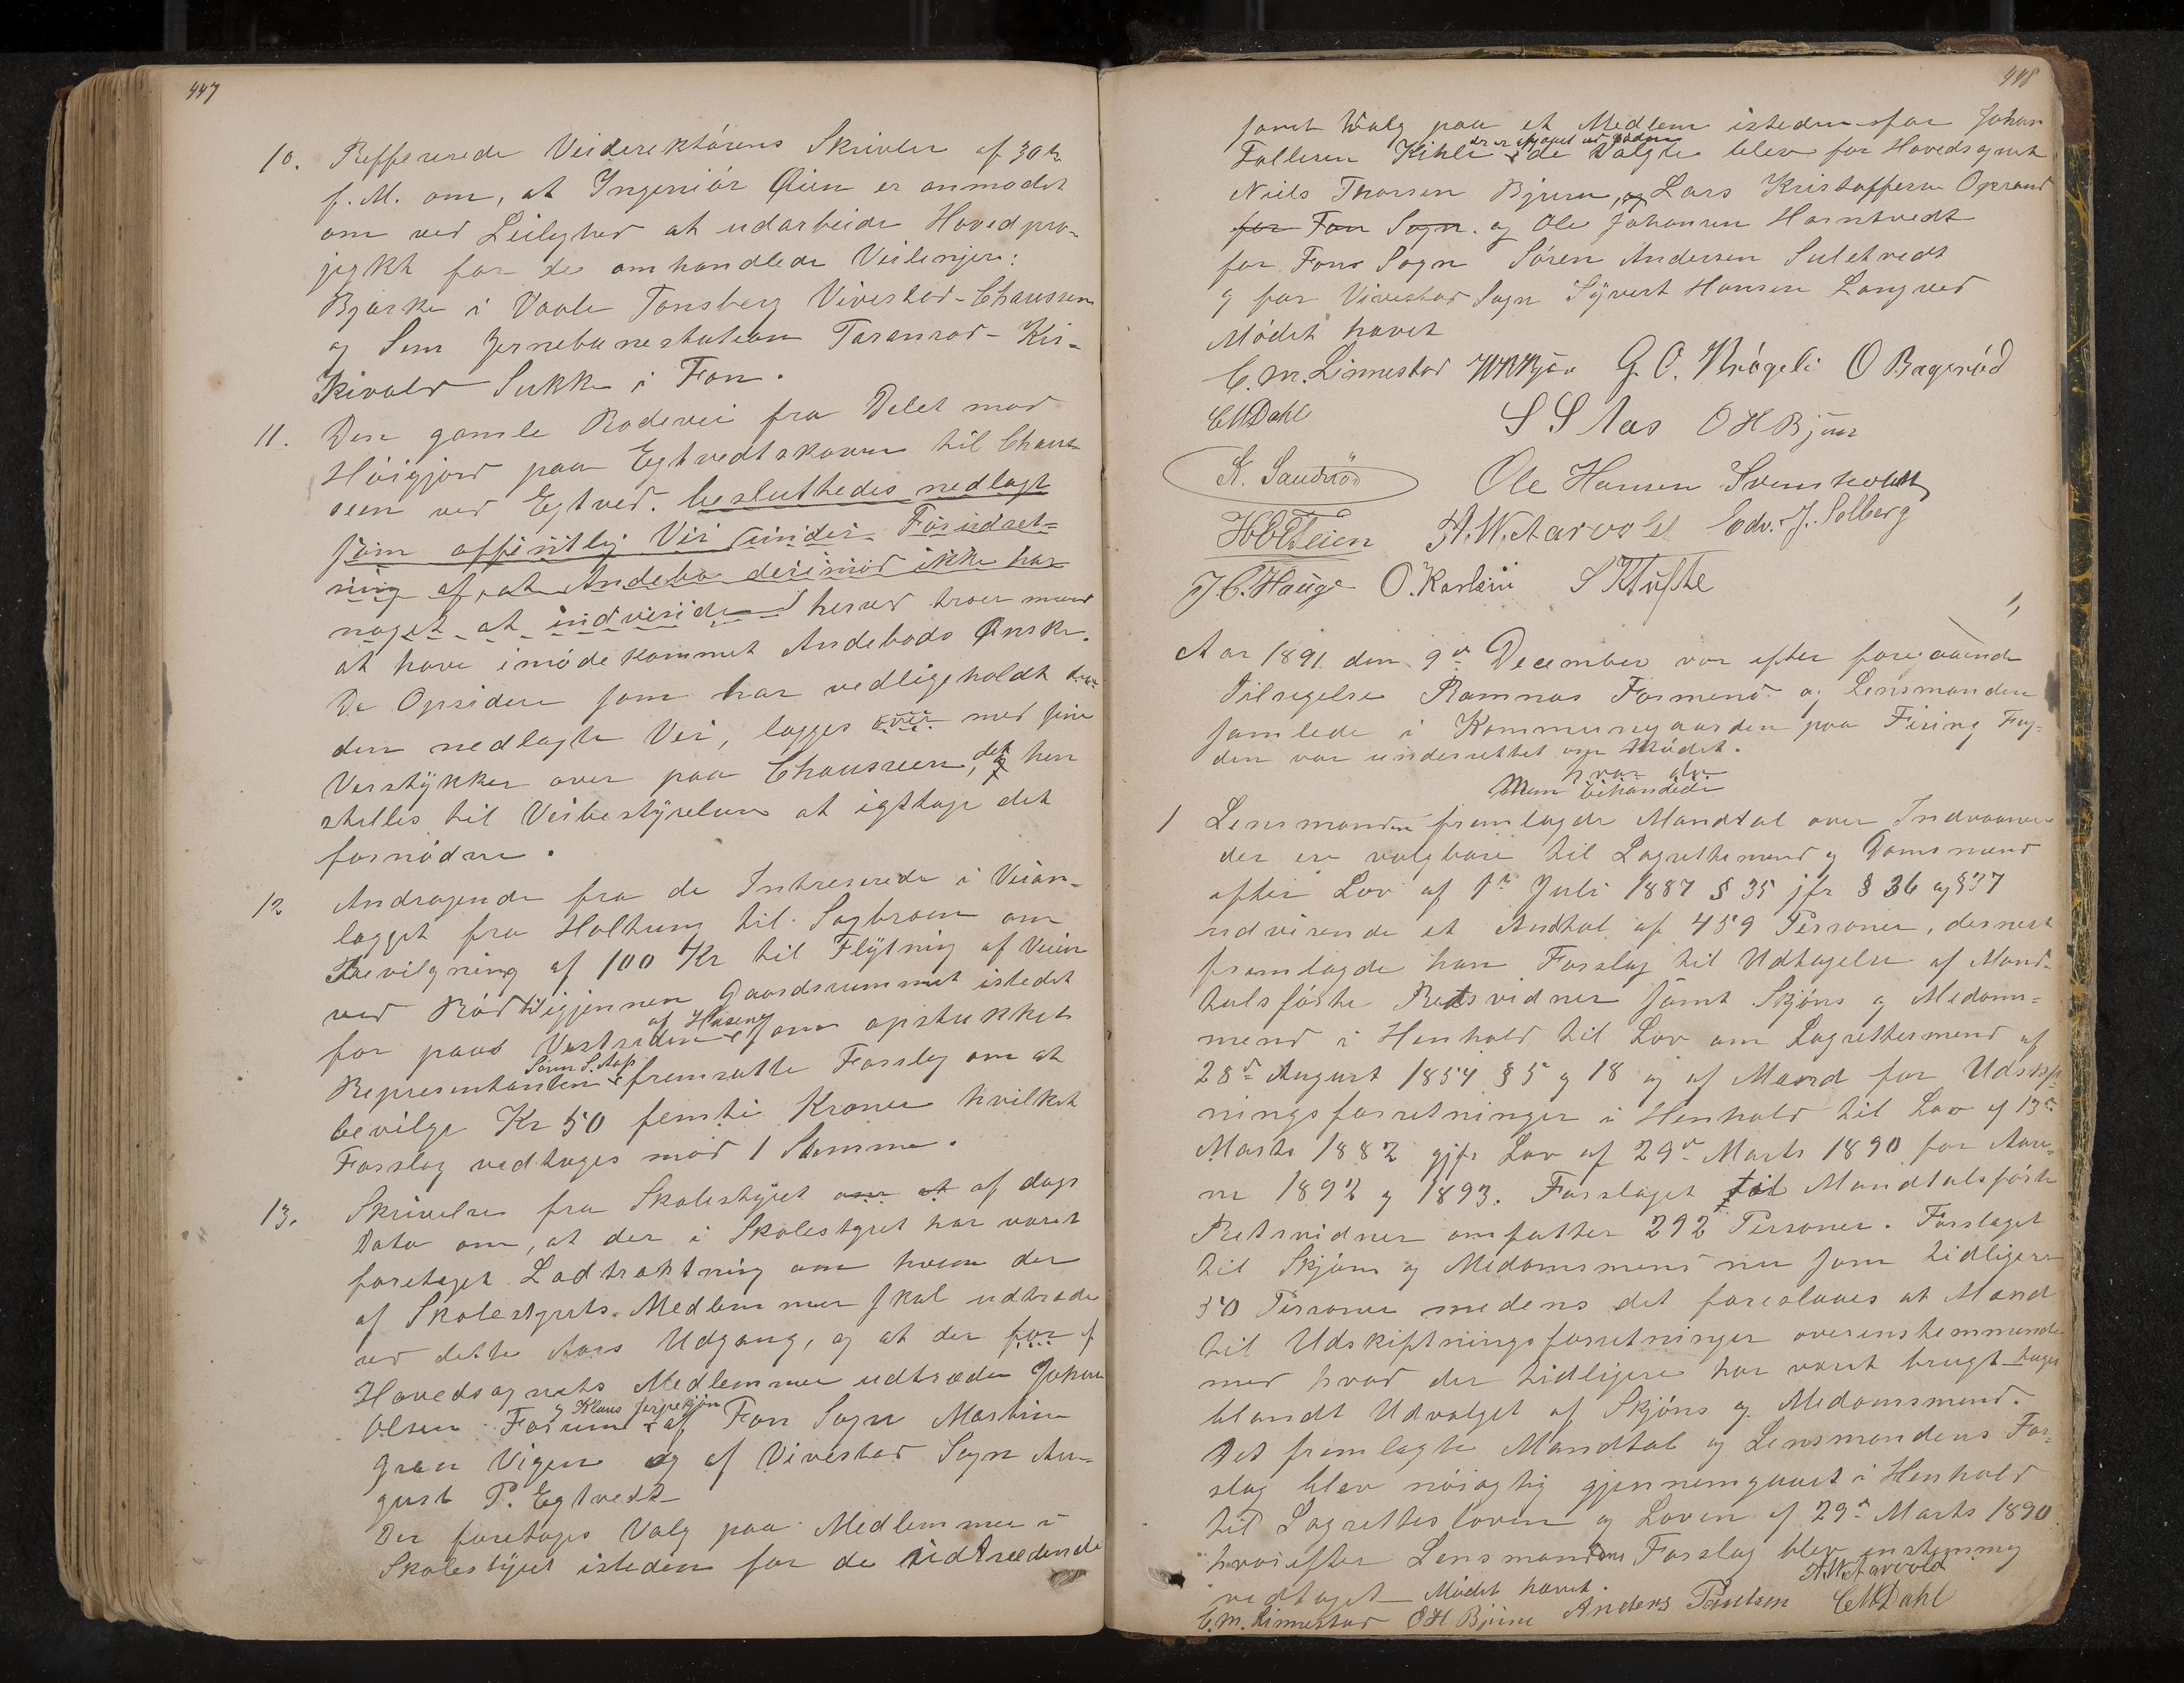 447
10. Reffererede Veiderektørens Skrivelse af 30te
f. M. om, at Ingeniør Øien er anmodet
om ved Leilighed at udarbeide Hovedpro-
jegkt for de omhandlede Veilenjer:
Bjerke i Vaale Tønsberg Vivestad-Chaussen
og Sem Jernebanestation Taranrød-Kir-
Kivold Sukke i Fon.
11. Den gamle Rodevei fra Delet mod
Høigjord paa Egtvedtskoven til Chaus
seen ved Egtved. besluttedes nedlagt
som offentlig Vei under Forudset-
ning af, at Andebo derimod ikke har
noget at indvende herved troer man
at have imødekommet Andebods Ønske.
De Opsidere som har vedligeholdt
den nedlagte Vei, lægges over med sine
Veistykker over paa Chausseen, det hen
stilles til Veibestyrelsen at igttage det
fornødne.
12 Andragende fra de Intreserede i Veian-
lægget fra Holtung til Sagbroen om
Bevilgning af 100 Kr til Flytning af Veien
ved Rød igjennem Gaardsrummet istedet
for paa Vestsiden af Husene som opstukket
Representanten Søren S. Aas fremsatte Forslag om at
bevilge Kr 50 femti Kroner hvilket
Forslag vedtoges mod 1 Stemme.
13. Skrivelse fra Skolestyret om at af dags
Dato om, at der i Skolestyret har været
foretaget Lodtrækning om hvem der
af Skolestyrets Medlemmer skal udtræde
ved dette Aars Udgang, og at der for af
Hovedsognets Medlemmer udtræder Johan
Olsen Forum og Klaus af Fon Sogn Martin
Græn Vigen og af Vivestad Sogn Au-
gust P. Egtvedt
Der foretoges Valg paa Medlemmer i
Skolestyret isteden for de udtrædende
448
samt Valg paa et Medlem istedenfor Johan
Follesen Kihle de Valgte blev for Hovedsognet
Niels Thorsen Bjune, og Lars Kristoffersen
for Fon Sogn. og Ole Johansen Horntvedt
for Fons Sogn Søren Andersen Suletvedt
og for Vivestad Sogn Syvert Hansen Langved
Mødet hævet
C. M. Linnestad G. O. O Bagerød
CMDahl S S Aas O H Bjune
K. Sandrød Ole Hansen
A. W. Aarvold Edv. J. Solberg
J C. Hauge O. Karlsen S K Tufte
Aar 1891 den 9de December var efter foregaaende
Tilsigelse Ramnæs Formend og Lensmanden
samlede i Kommunegaarden paa Firing Fog-
den var underrettet om Mødet.
hvor da
Man behandlede
1 Lensmanden fremlagde Mandtal over Indvaanere
der er valgbare til Lagrettemend og Domsmænd
efter Lov af 1te Juli 1887 § 35 jfr § 36 og § 37
udvisende et Andtal af 459 Personer, dernest
fremlagde han Forslag til Udtagelse af Mand-
talsførte Retsvidner samt Skjøns og Medoms-
mend i Henhold til Lov om Lagrettesmend af
28de August 1854 § 5 og 18 og af Mænd for Udskift
ningsforretninger i Henhold til Lov af 13de
Marts 1882 gjfr Lov af 29de Marts 1890 for Aare-
ne 1892 og 1893. Forslaget til Mandtalsførte
Retsvidner omfatter 292 Personer. Forslaget
til Skjøns og Medomsmend nu som tidligere
50 Personer medens det foreslaaes at Mænd
til Udskiftningsforretninger overenstemmende
med hvad der tidligere har været brugt tages
blandt Udvalget af Skjøns og Medomsmend.
Det fremlagte Mandtal og Lensmandens For-
slag blev nøiagtig gjennemgaaet i Henhold
til Lagrettesloven og Loven af 29de Marts 1890
hvorefter Lensmandens Forslag blev enstemmig
vedtaget Mødet hævet. A.W.Aarvold
C. M. Linnestad O H Bjune Anders Paulsen CMDahl